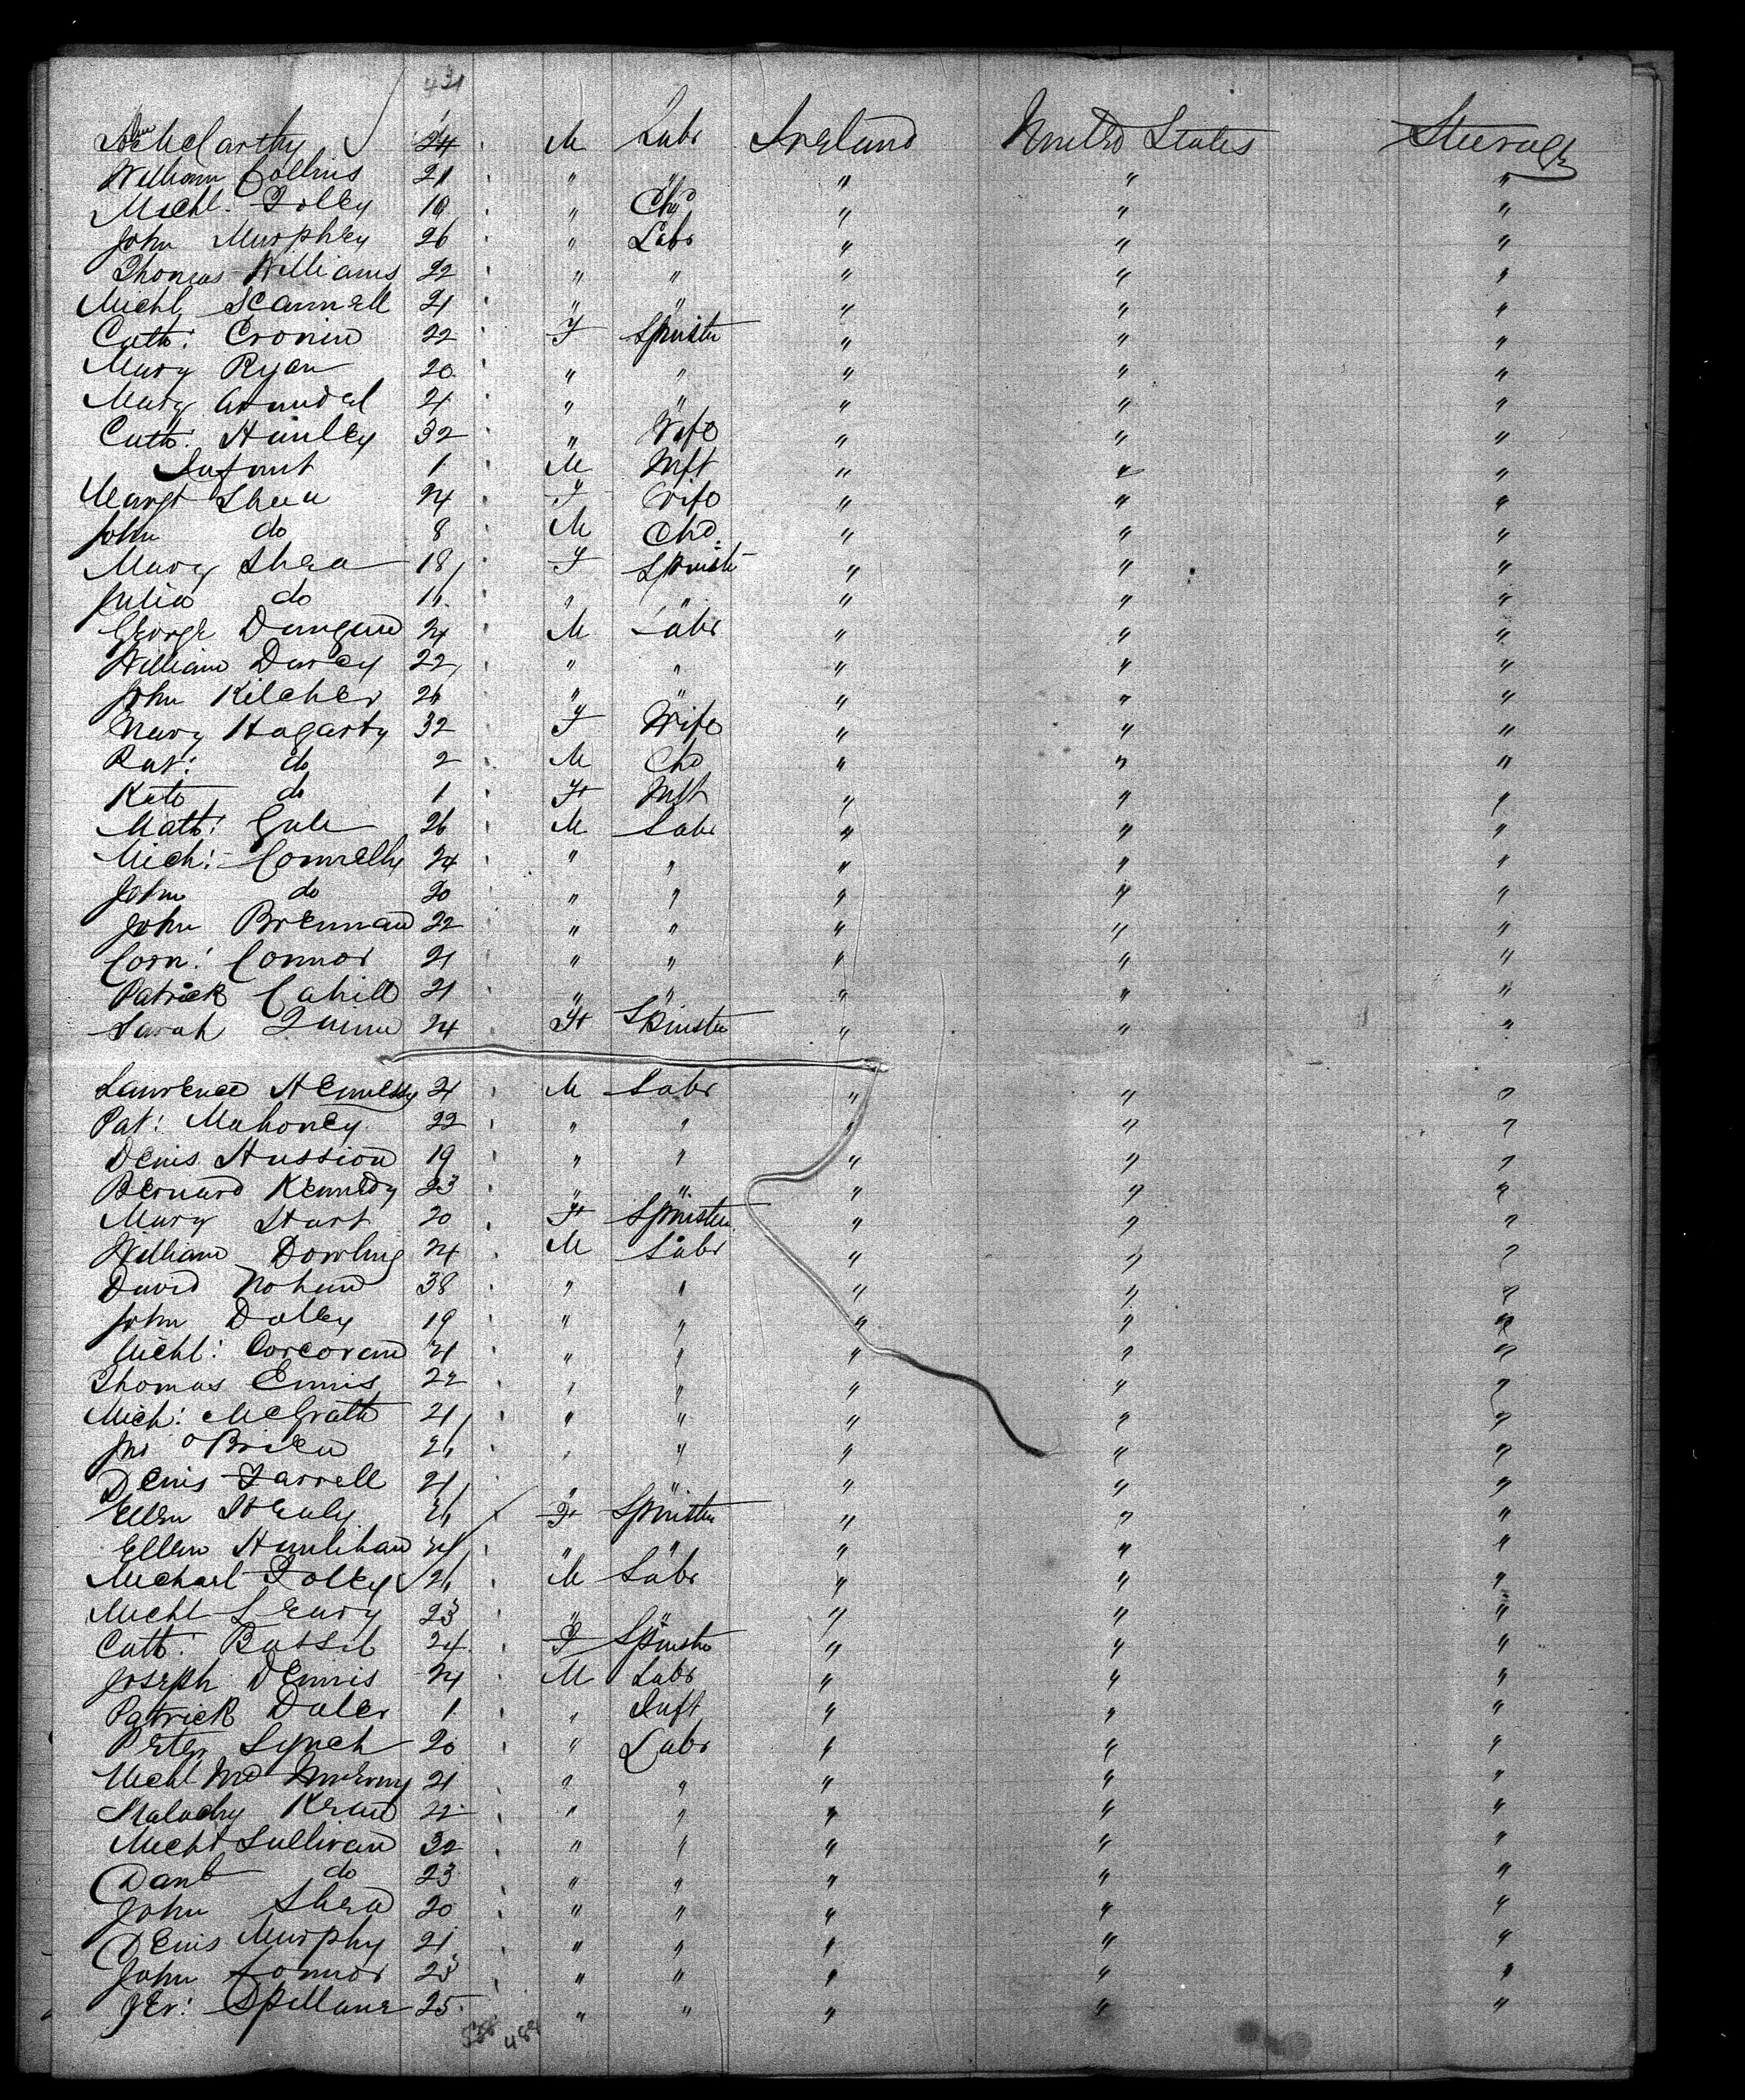 431
McCarthy 24 M Labr Ireland United States Steerage
William Collins 21 " " " " "
Michl. Folley 19 " Chd " " "
John Murphey 26 " Labr " " "
Thomas Williams 22 " " " " "
Michl Scannell 21 " " " " "
Cath: Cronin 22 F Spinster " " "
Mary Ryan 20 " " " " "
Mary Arundel 21 " " " " "
Cath: Hanley 32 " Wife " " "
Infant 1 M Inft " " "
Margt Shea 24 F Wife " " "
John do 8 M Chd. " " "
Mary Shea 18 F Spinstr " " "
Julia do 16 " " " " "
George Dungan 24 M Labr " " "
William Darcy 22 " " " " "
John Kilcher 26 " " " " "
Mary Hagarty 32 F Wife " " "
Pat: do 2 M Chd " " "
Kate do 1 F Inft " " "
Math: Gale 26 M Labr " " "
Mich: Connelly 24 " " " " "
John do 20 " " " " "
John Brennan 22 " " " " "
Corn: Connor 21 " " " " "
Patrick Cahill 21 " " " " "
Sarah Quinn 24 F Spinster " " "
Lawrence Hennessy 21 M Labr " " "
Pat: Mahoney 22 " " " " "
Denis Hussion 19 " " " " "
Bernard Kennedy 23 " " " " "
Mary Hart 20 F Spinster " " "
William Dowling 24 M Labr " " "
David Nohan 38 " " " " "
John Dolley 19 " " " " "
Michl: Corcoran 21 " " " " "
Thomas Ennis 22 " " " " "
Mich: McGrath 21 " " " " "
Jno O'Brien 26 " " " " "
Denis Farrell 21 " " " " "
Ellen Healy 26 F Spinster " " "
Ellen Hanlihan 24 " " " " "
Michael Folley 26 M Labr " " "
Michl Leary 23 " " " " "
Cath: Bassil 24 F Spinstr " " "
Joseph Dennis 24 M Labr " " "
Patrick Daler 1 " Inft " " "
Peter Lynch 20 " Labr " " "
Michl Mc 21 " " " " "
Malachy Kean 22 " " " " "
Michl Sullivan 32 " " " " "
Danl do 23 " " " " "
John Shea 20 " " " " "
Denis Murphy 21 " " " " "
John Connor 23 " " " " "
Jer: Spillane 25 " " " " "